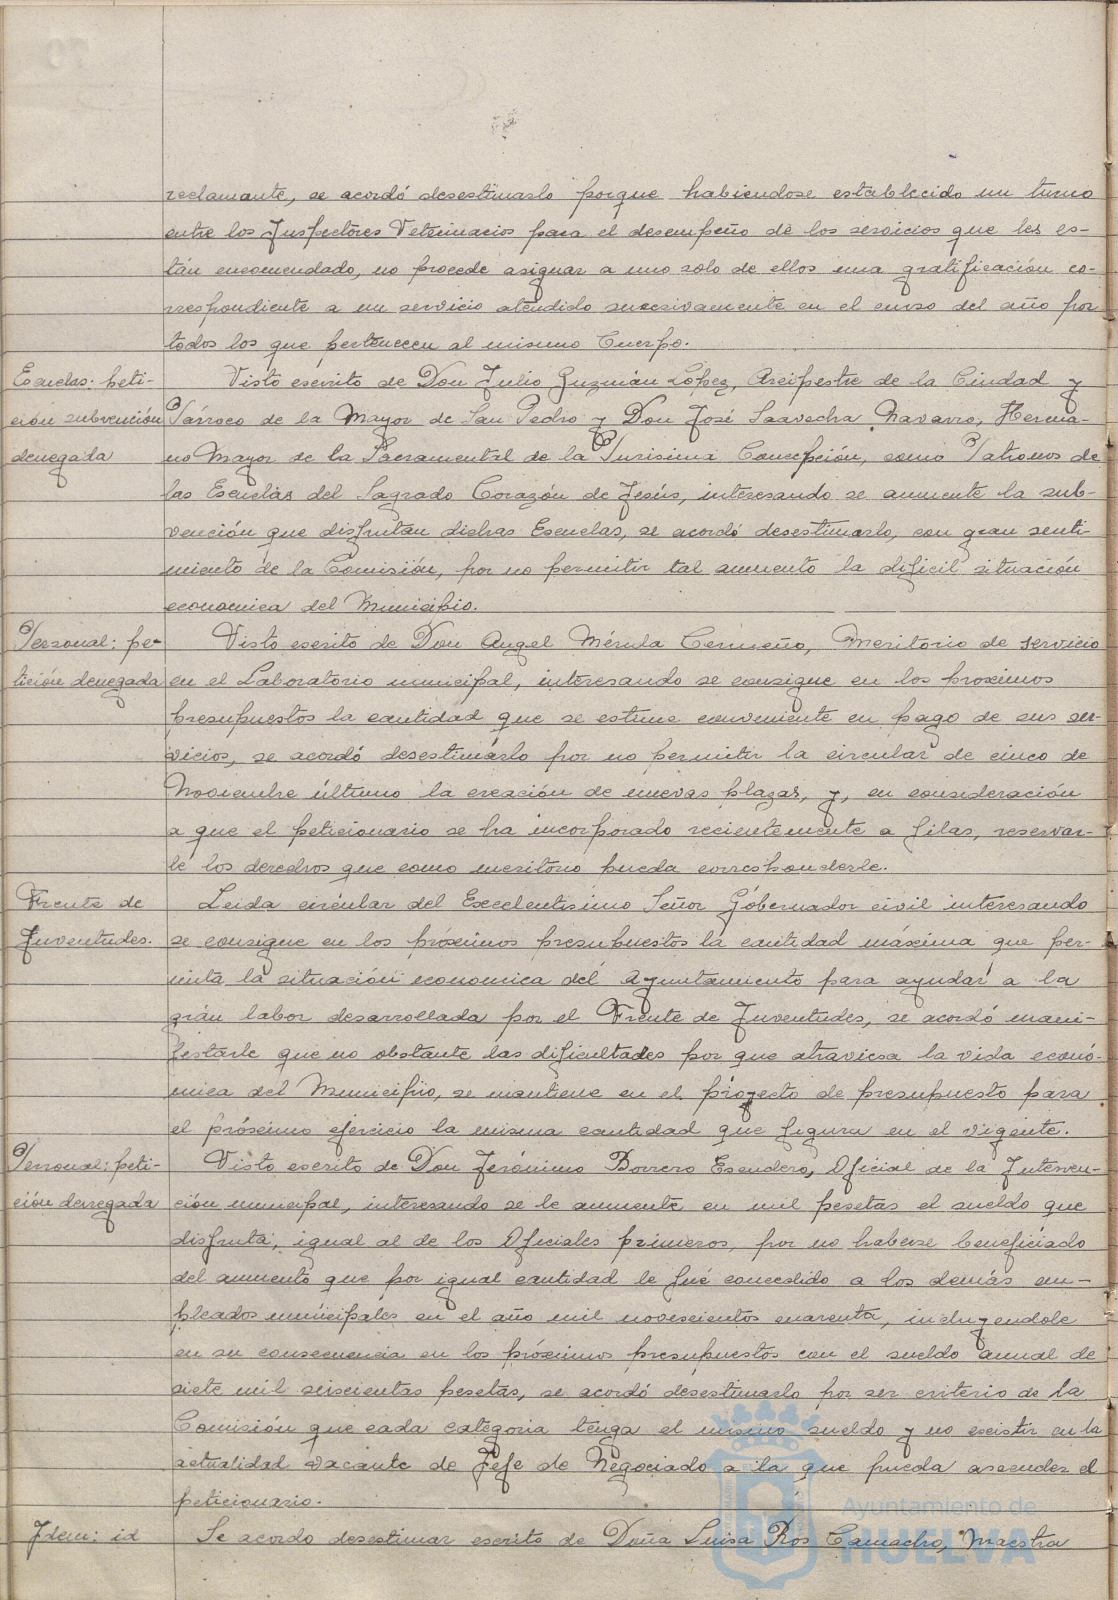 reclamante, se acordó desestimarlo porque habiendose establecido un turno
entre los Inspectores Veterinarios para el desempeño de los servicios que les es-
tán encomendado, no procede asignar a uno solo de ellos una gratificación co-
rrespondiente a un servicio atendido sucesivamente en el curso del año por
todos los que pertenecen al mismo Cuerpo.
Escuelas: peti-
ción subvención
denegada
Visto escrito de Don Julio Guzmán López, Arcipestre de la Ciudad y
Párroco de la Mayor de San Pedro y Don José Saavedra Navarro, Herma-
no Mayor de la Sacramental de la Purisima Concepción, como Patronos de
las Escuelas del Sagrado Corazón de Jesús, interesando se aumente la sub-
vención que disfrutan dichas Escuelas, se acordó desestimarlo, con gran senti-
miento de la Comisión, por no permitir tal aumento la dificil situación
economica del Municipio.
Personal: pe-
tición denegada
Visto escrito de Don Angel Mérida Cermeño, Meritorio de servicio
en el Laboratorio municipal, interesando se consigne en los proximos
presupuestos la cantidad que se estime conveniente en pago de sus ser-
vicios, se acordó desestimárlo por no permitir la circular de cinco de
Noviembre último la creación de nuevas plazas, y, en consideración
a que el peticionario se ha incorporado recientemente a filas, reservar-
le los derechos que como meritorio pueda corresponderle.
Frente de
Juventudes.
Leida circular del Excelentisimo Señor Góbernador civil interesando
se consigne en los próximos presupuestos la cantidad máxima que per-
mita la situación economica del Ayuntamiento para ayudar a la
grán labor desarrollada por el Frente de Juventudes, se acordó mani-
festarle que no obstante las dificultades por que atraviesa la vida econó-
mica del Municipio, se mantiene en el proyecto de presupuesto para
el próximo ejercicio la misma cantidad que figura en el vigente.
Personal: peti-
ción denegada
Visto escrito de Don Jerónimo Borrero Escudero, Oficial de la Interven-
ción municipal, interesando se le aumente en mil pesetas el sueldo que
disfruta, igual al de los Oficiales primeros, por no haberse beneficiado
del aumento que por igual cantidad le fué concedido a los demás em-
pleados municipales en el año mil novescientos cuarenta, incluyendole
en su consecuencia en los próximos presupuestos con el sueldo anual de
siete mil seiscientas pesetas, se acordó desestimarlo por ser criterio de la
Comisión que cada categoria tenga el mismo sueldo y no existir en la
actualidad vacante de Jefe de Negociado a la que pueda ascender el
peticionario.
Idem: id
Se acordo desestimar escrito de Doña Luisa Ros Camacho, Maestra
Ayuntamiento de
HUELVA